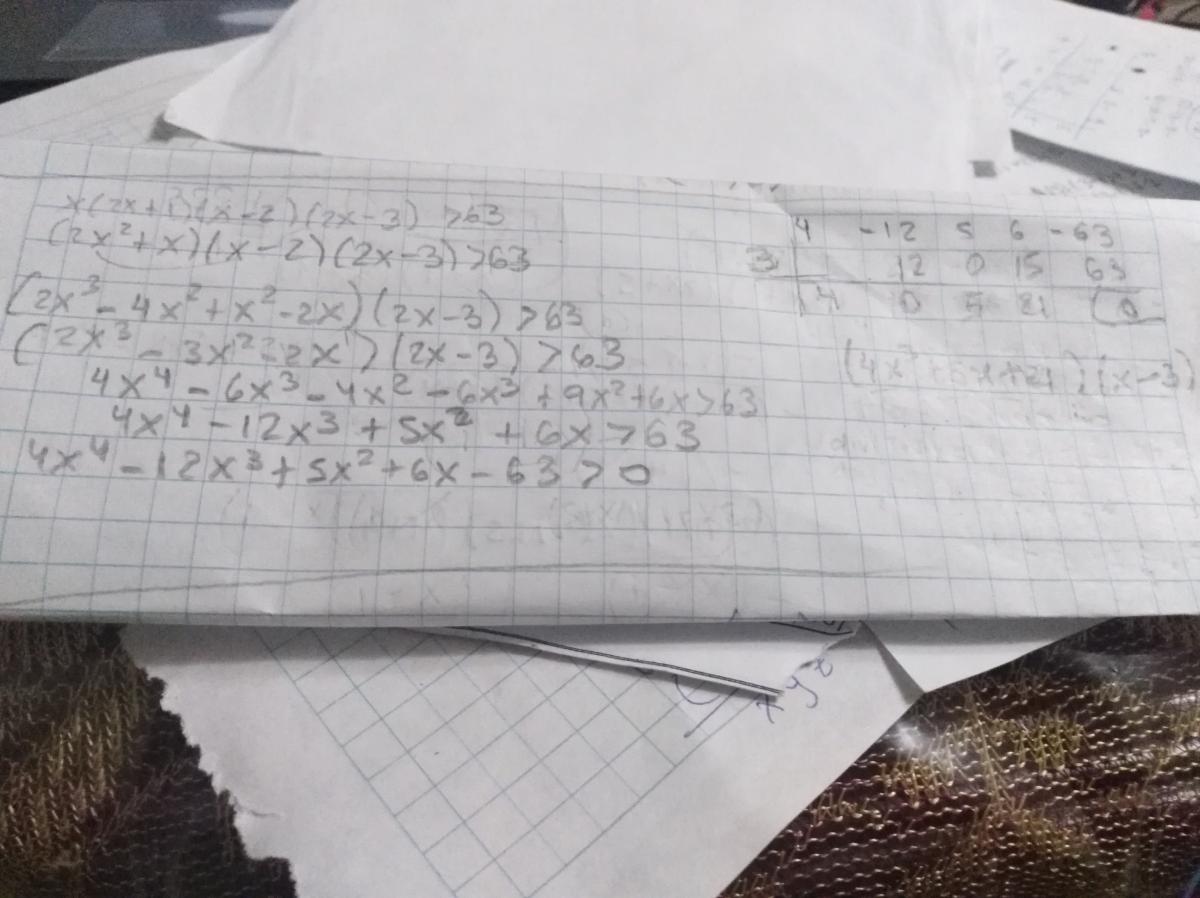 x(2x+1)(x-2)(2x-3) >63
(2x²+x)(x-2)(2x-3)>63
(2x³-4x²+x²-2x)(2x-3)>63
(2x³-3x²-2x)(2x-3)>63
4x⁴-6x³-4x²-6x³+9x²+6x>63
4x⁴-12x³+5x²+6x>63
4x⁴-12x³+5x²+6x-63>0
4 -12 5 6 -63
3 12 0 15 63
4 0 5 21 0
(4x³+5x+21)(x-3)
x y z